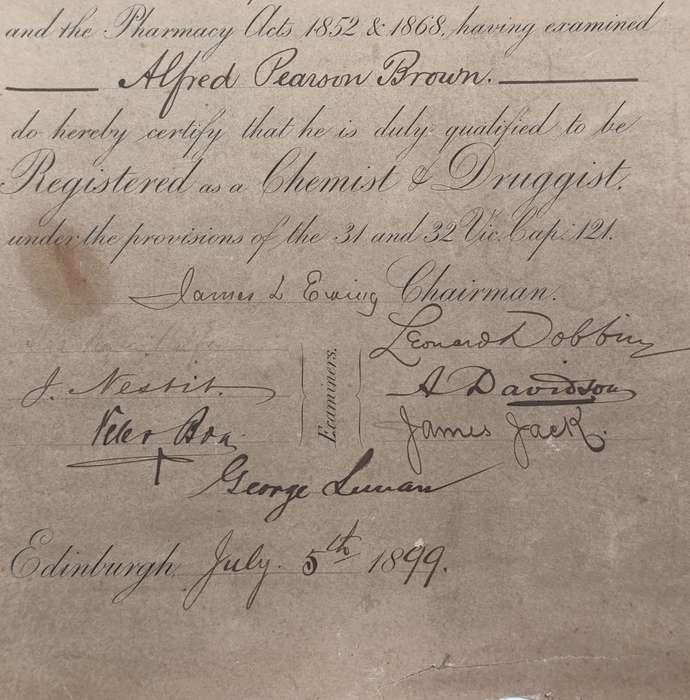 and the Pharmacy Acts 1852 & 1868, having examined
Alfred Pearson Brown.
do hereby certify that he is duly qualified to be
Registered as a Chemist & Druggist,
under the provisions of the 31 and 32 Vic. Cap: 121.
James L Ewing Chairman.
Leonard Dobbin
J. Nesbit.
A Davidson
Examiners.
Peter Boa
James Jack.
George Lunan
Edinburgh July 5th 1899.